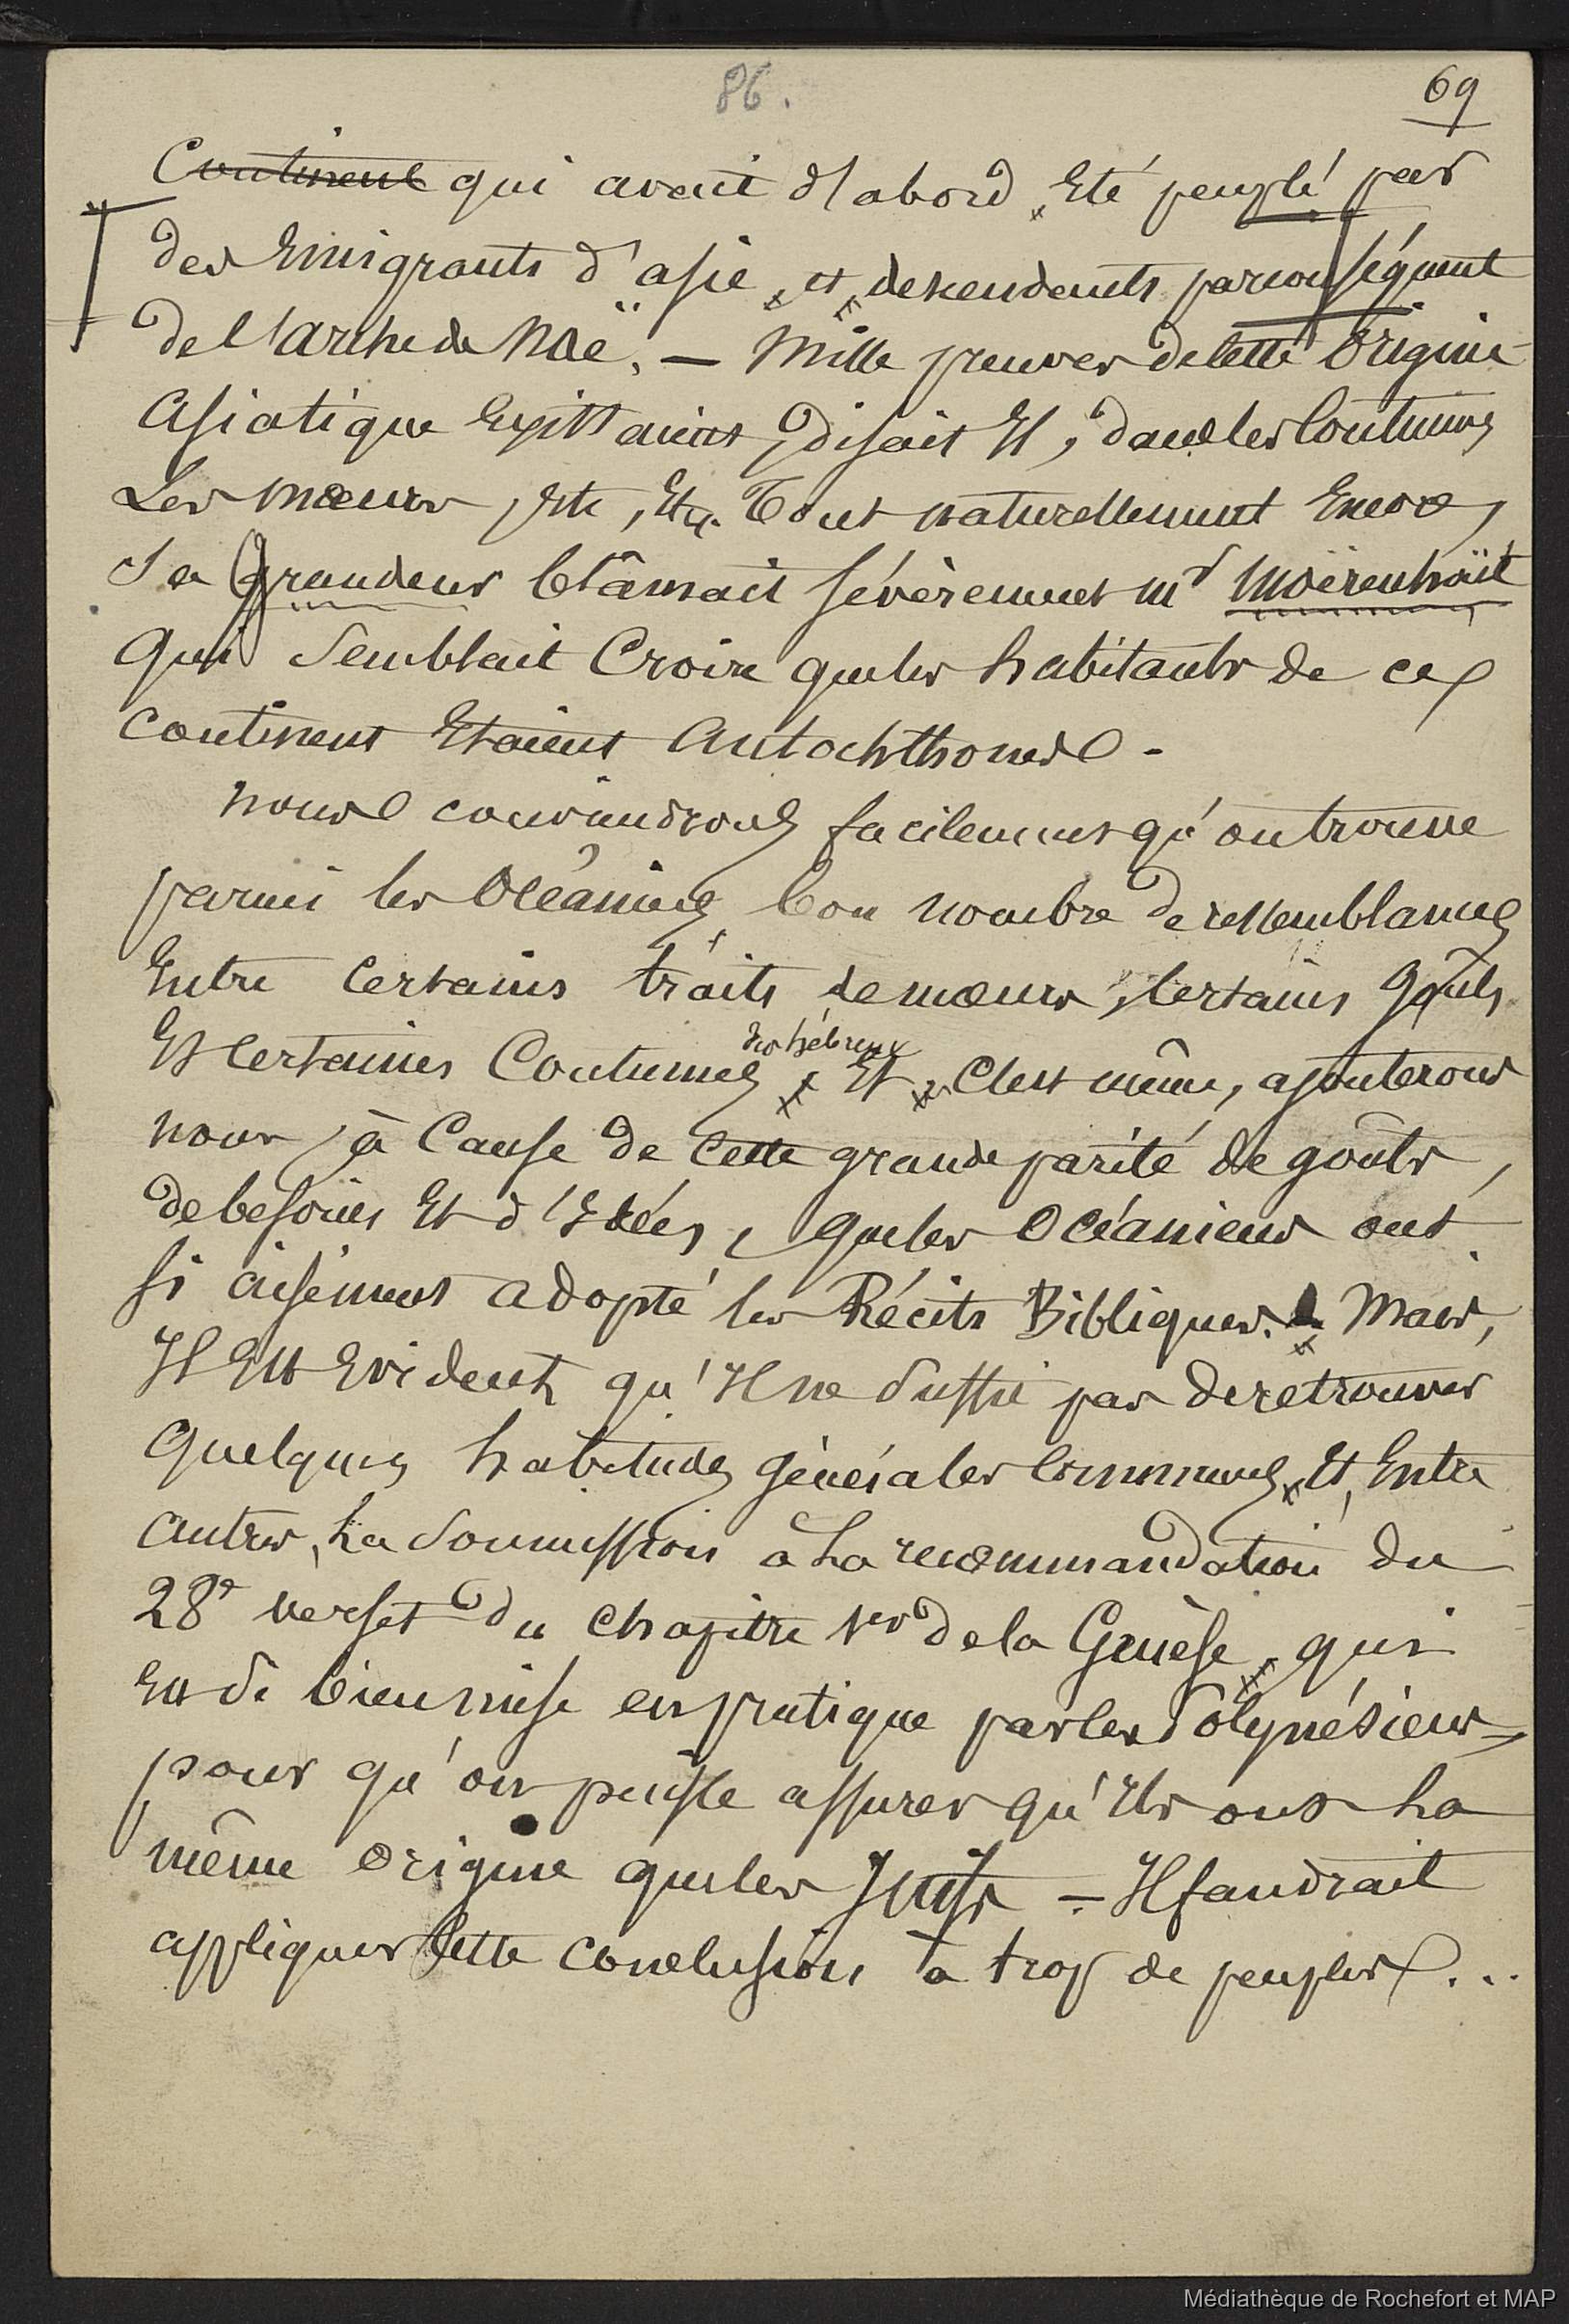 86.
69
Continent qui avait d'abord été peuplé par
des Emigrants d'asie, et descendants par conséquent
de l'arche de Noë. — Mille preuves de cette Origine
Asiatique Existaient, disait Il, dans les Coutumes
Les mœurs, Etc, Etc. Tout naturellement Encore,
Sa Grandeur blâmait sévèrement Mr Moërenhoüt
Qui Semblait Croire que les habitants de ce
Continent Etaient Autochthones -
Nous conviendrons facilement qu'on trouve
parmi les Océaniens bon nombre de ressemblances
Entre Certains traits de mœurs, Certains Goûts
Et Certaines Coutumes des hébreux, Et C'est même, ajouterons
nous, à Cause de Cette grande parité de goûts,
de besoins Et d'Idées, que les Océaniens ont
si aisément adopté les Récits Bibliques. Mais,
Il Est Evident qu'Il ne Suffit pas de retrouver
Quelques habitudes générales Communes, Et, Entre
autres, La Soumission à La recommandation du
28e verset du Chapitre 1er de la Genèse, qui
Est Si bien mise en pratique par les Polynésiens,
pour qu'on puisse assurer qu'Ils ont La
même Origine que les Juifs — Il faudrait
appliquer Cette Conclusion à trop de peuples...
Médiathèque de Rochefort et MAP